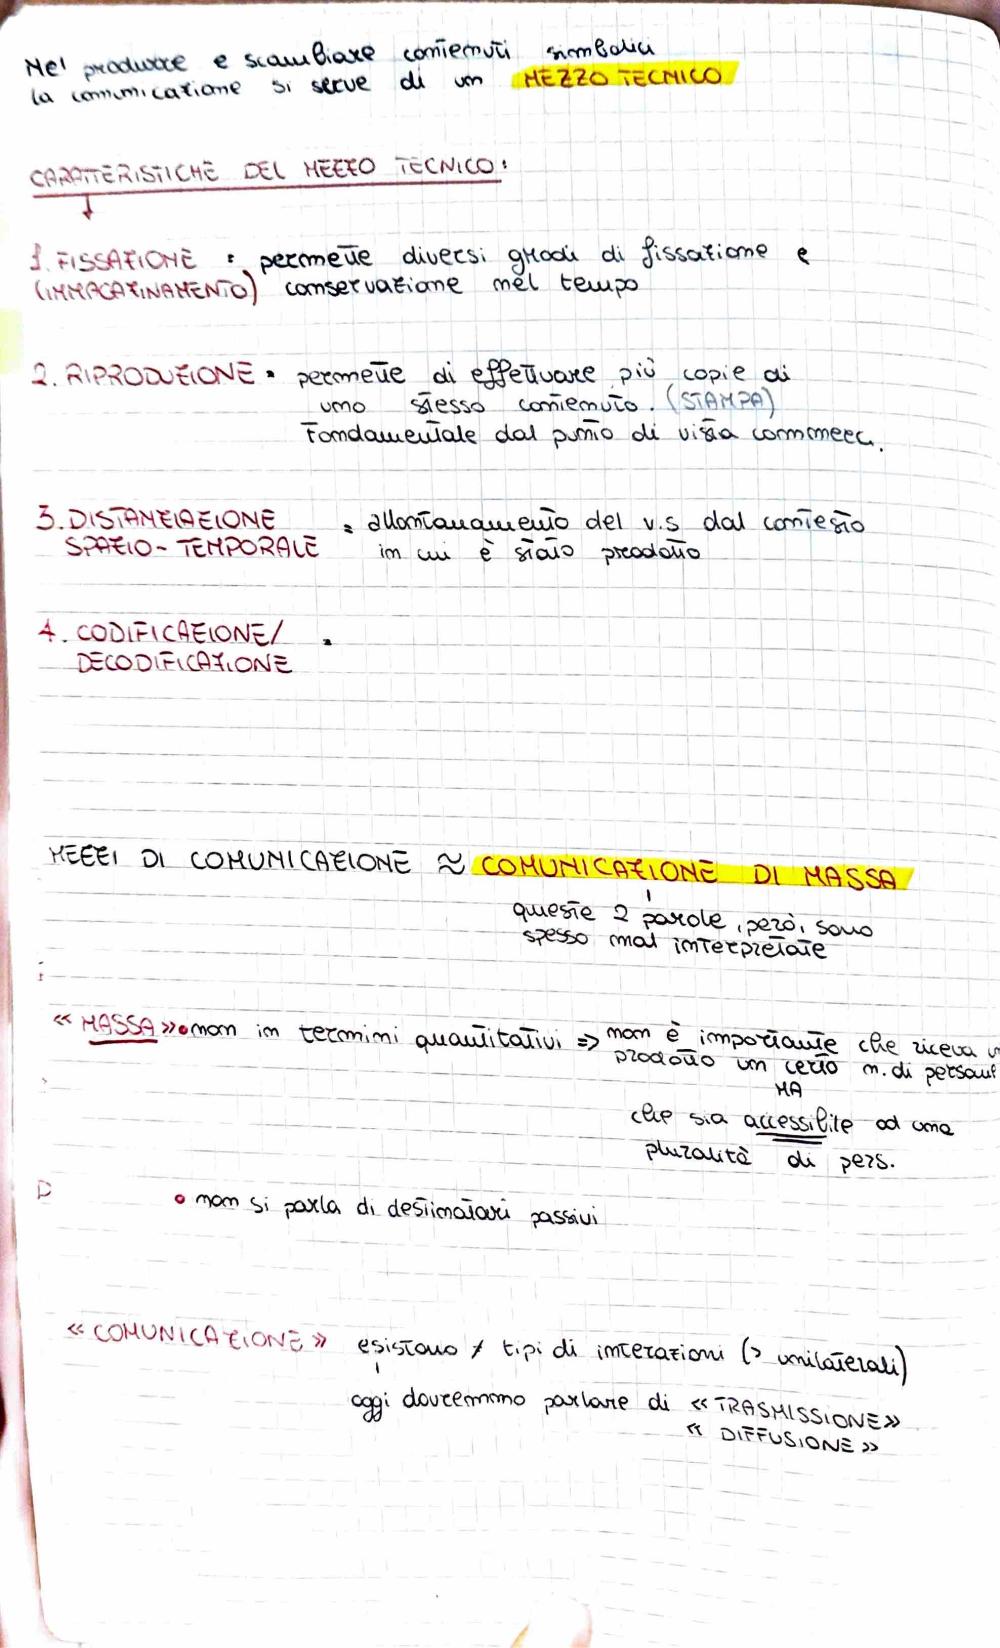 Nel produrre e scambiare contenuti simbolici
la comunicazione si serve di un MEZZO TECNICO
CARATTERISTICHE DEL MEZZO TECNICO:
1. FISSAZIONE : permette diversi gradi di fissazione e
(IMMAGAZINAMENTO) conservazione nel tempo
2. RIPRODUZIONE : permette di effettuare più copie di
uno stesso contenuto. (STAMPA)
Fondamentale dal punto di vista commerc.
3. DISTANZIAZIONE : allontanamento del v.s dal contesto
SPAZIO-TEMPORALE in cui è stato prodotto
4. CODIFICAZIONE/ :
DECODIFICAZIONE
MEZZI DI COMUNICAZIONE ≈ COMUNICAZIONE DI MASSA
queste 2 parole, però, sono
spesso mal interpretate
« MASSA » • non in termini quantitativi => non è importante che riceva un
prodotto un certo n. di persone
MA
che sia accessibile ad una
pluralità di pers.
• non si parla di destinatari passivi
« COMUNICAZIONE » esistono ≠ tipi di interazioni (> unilaterali)
oggi dovremmo parlare di « TRASMISSIONE »
« DIFFUSIONE »